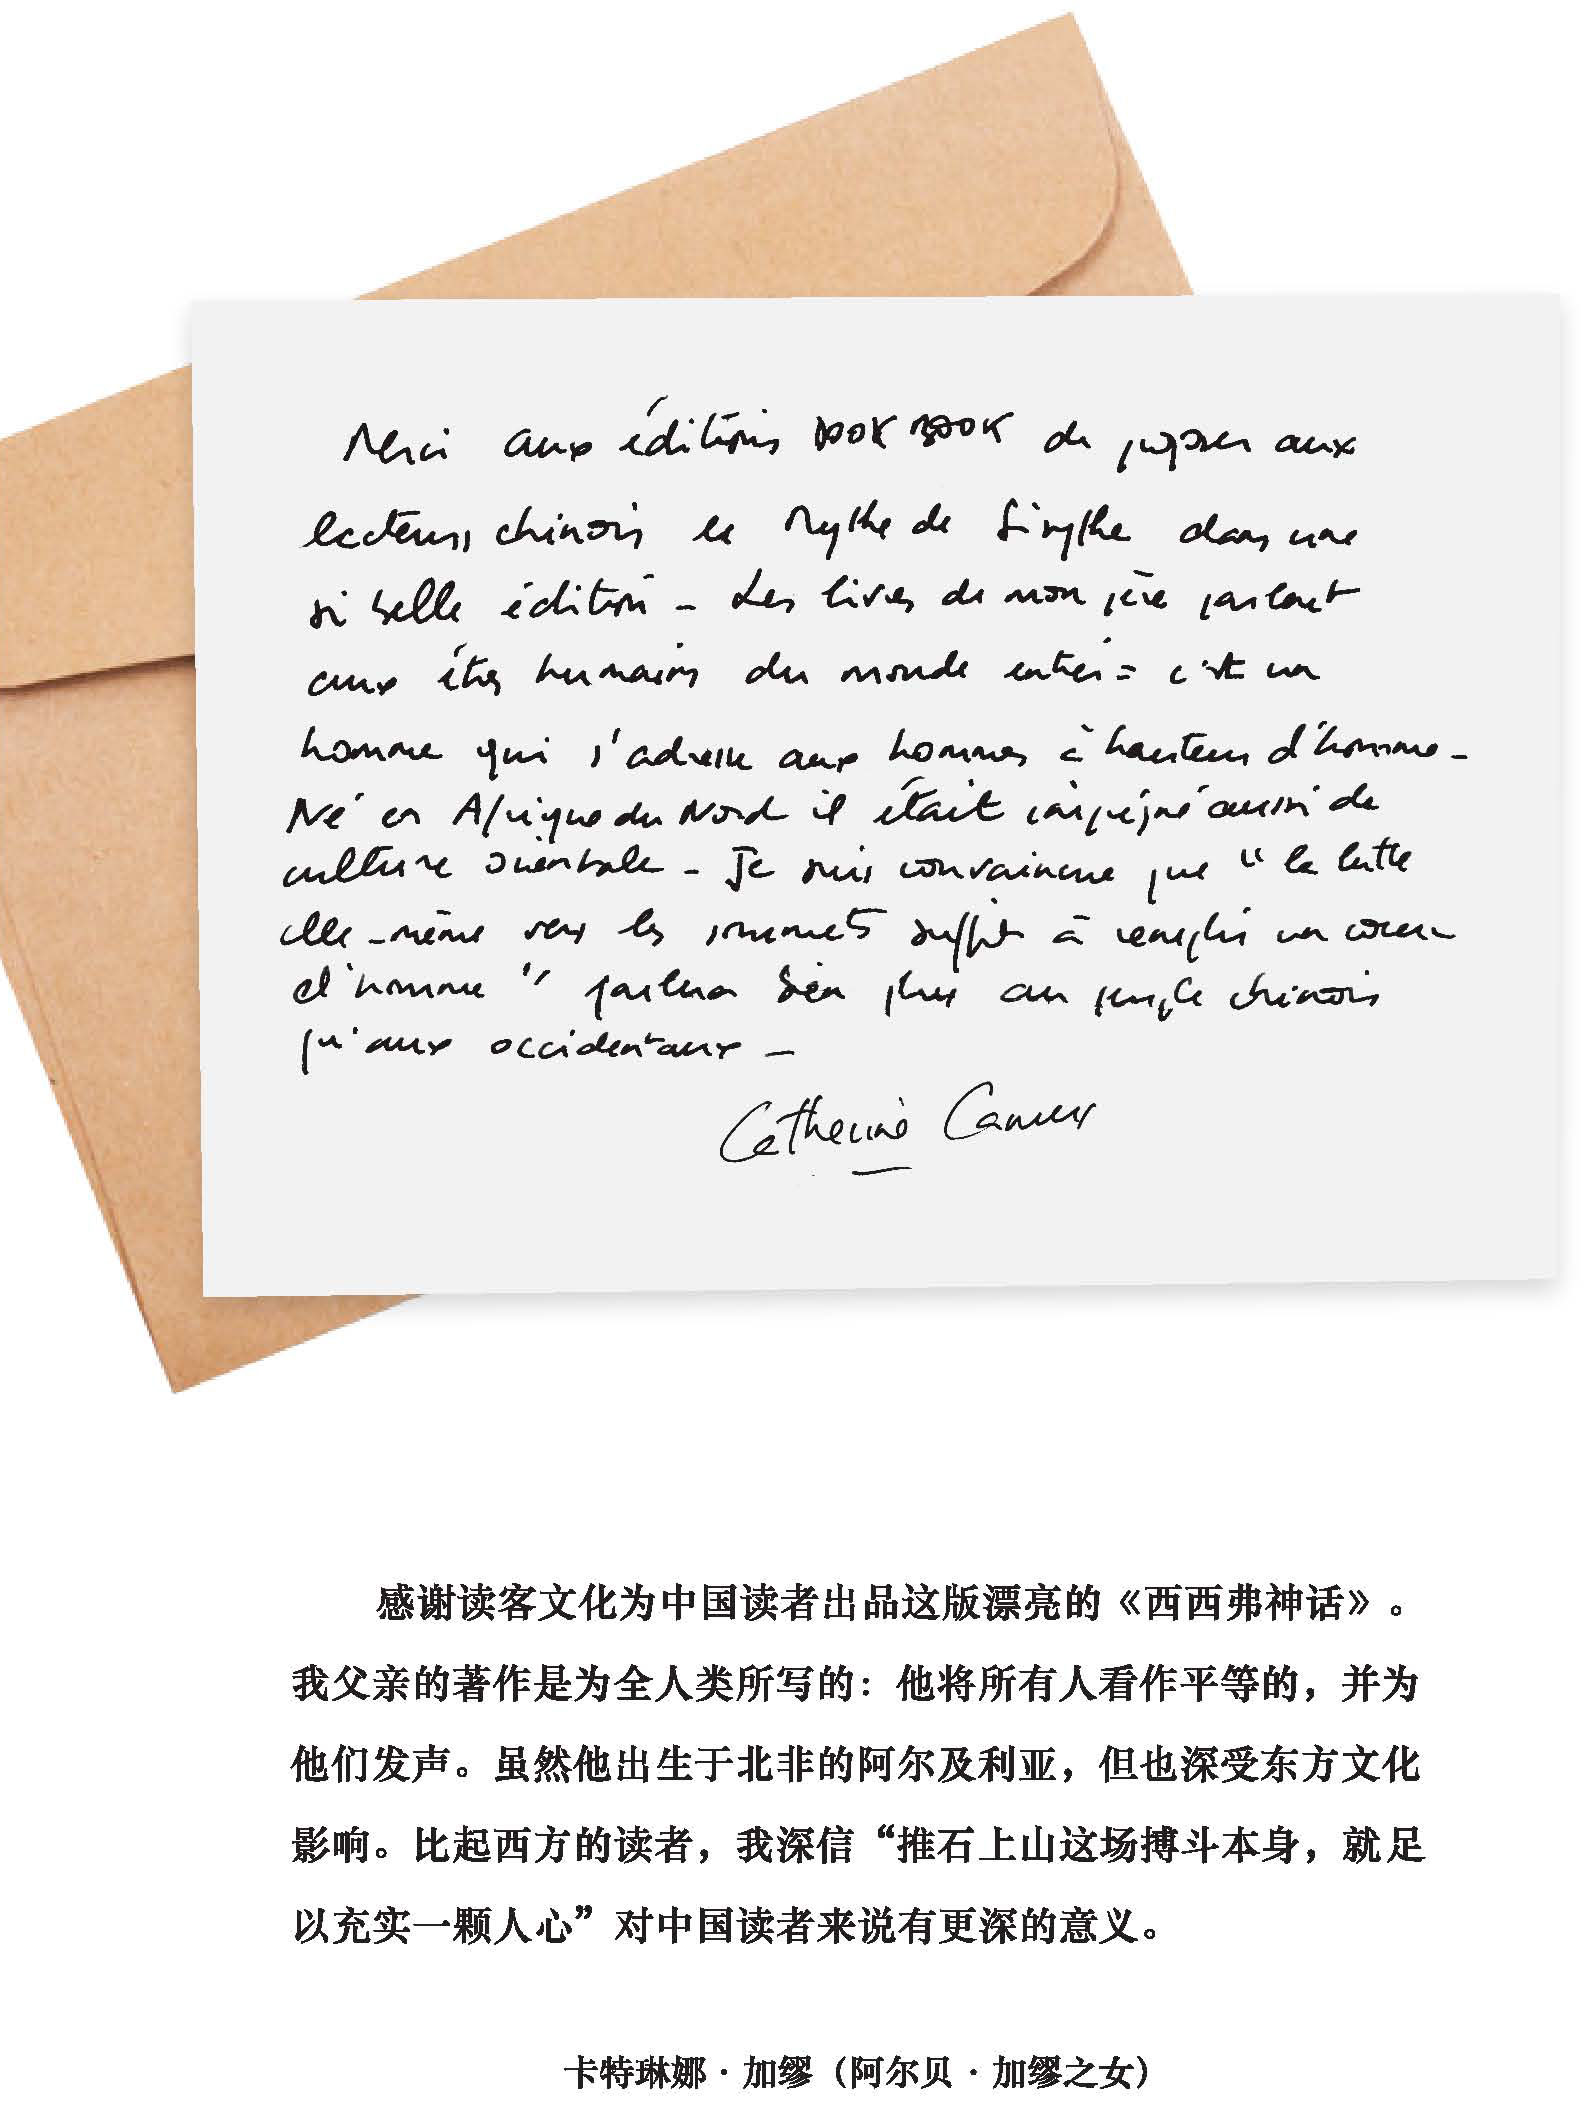 Merci aux éditions DOOK BOOK de proposer aux
lecteurs chinois le Mythe de Sisyphe dans une
si belle édition - Les livres de mon père parlent
aux êtres humains du monde entier = c'est un
homme qui s'adresse aux hommes à hauteur d'homme -
Né en Afrique du Nord il était imprégné aussi de
culture orientale - Je suis convaincue que "la lutte
elle-même vers les sommets suffit à remplir un coeur
d'homme" parlera bien plus au peuple chinois
qu'aux occidentaux -
Catherine Camus
感谢读客文化为中国读者出品这版漂亮的《西西弗神话》。
我父亲的著作是为全人类所写的：他将所有人看作平等的，并为
他们发声。虽然他出生于北非的阿尔及利亚，但也深受东方文化
影响。比起西方的读者，我深信“推石上山这场搏斗本身，就足
以充实一颗人心”对中国读者来说有更深的意义。
卡特琳娜·加缪（阿尔贝·加缪之女）